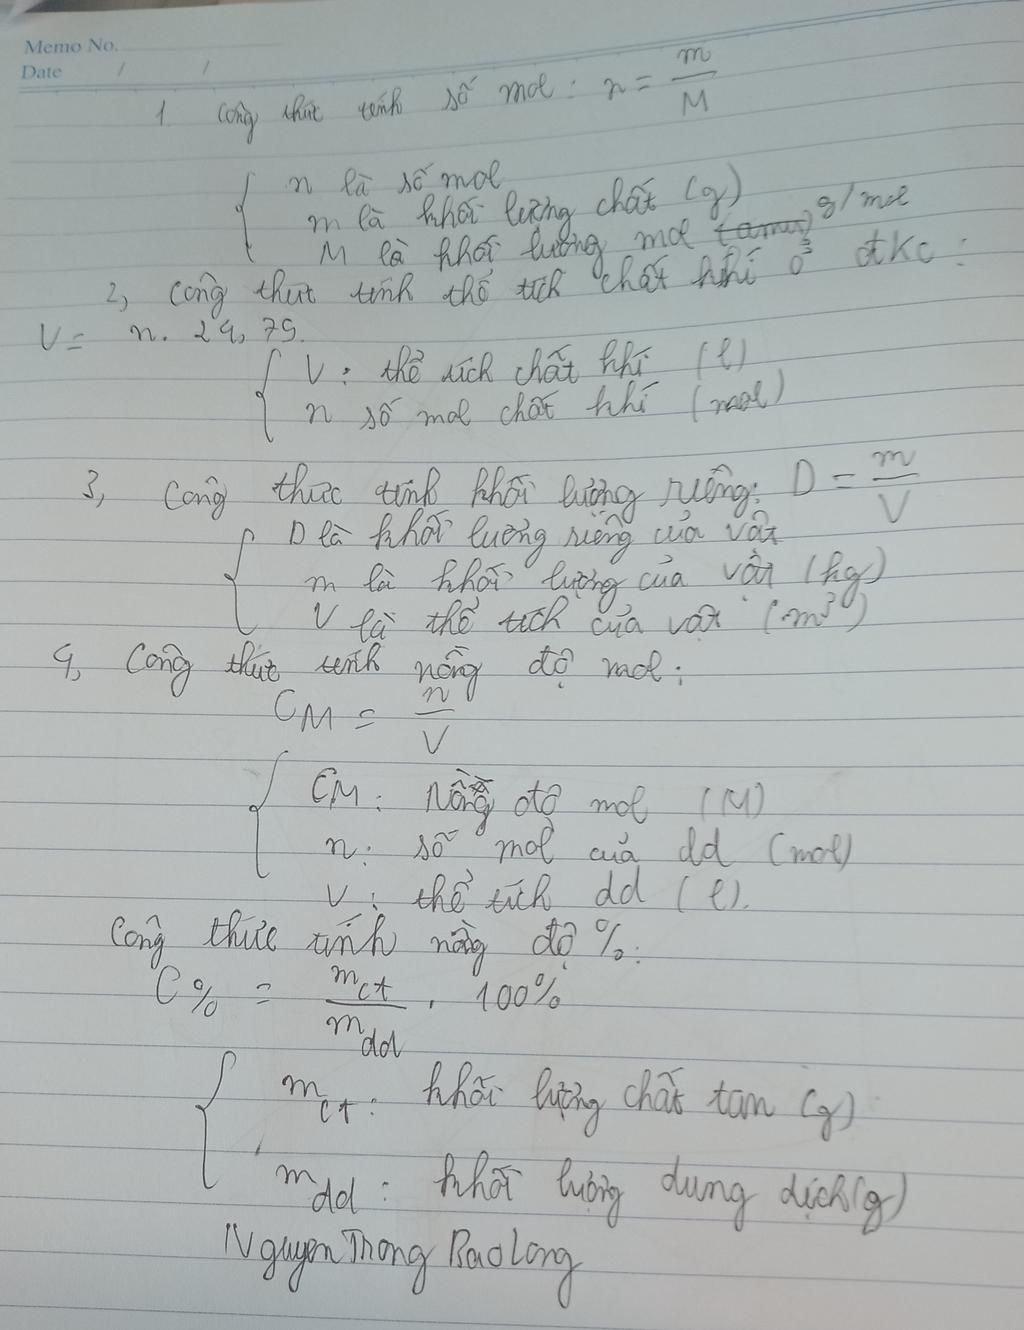 Memo No.
Date / /
1 Công thức tính số mol : n = m/M
n là số mol
m là khối lượng chất (g)
M là khối lượng mol g/mol
2, Công thưc tính thể tích chất khí ở đkc :
V = n. 24,79.
V : thể tích chất khí (l)
n số mol chất khí (mol)
3, Công thức tính khối lượng riêng: D = m/V
D là khối lượng riêng của vật
m là khối lượng của vật (kg)
V là thể tích của vật (m³)
4, Công thức tính nồng độ mol :
CM = n/V
CM : Nồng độ mol (M)
n : số mol của dd (mol)
V : thể tích dd (l).
Công thức tính nồng độ % :
C% = mct/mdd . 100%
mct : khối lượng chất tan (g)
mdd : khối lượng dung dịch (g)
Nguyen Trong Bao Long